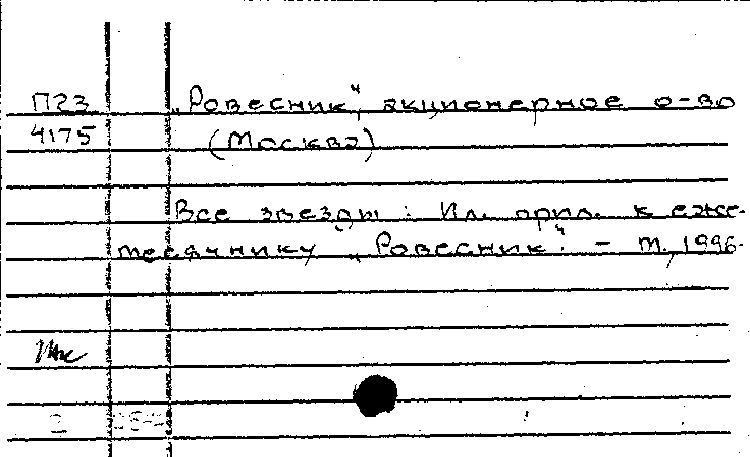 П23 „Ровесник“, акционерное о-во
4175 (Москва)
Все звезды : Ил. прил. к еже-
месячнику „Ровесник“. – М., 1996-